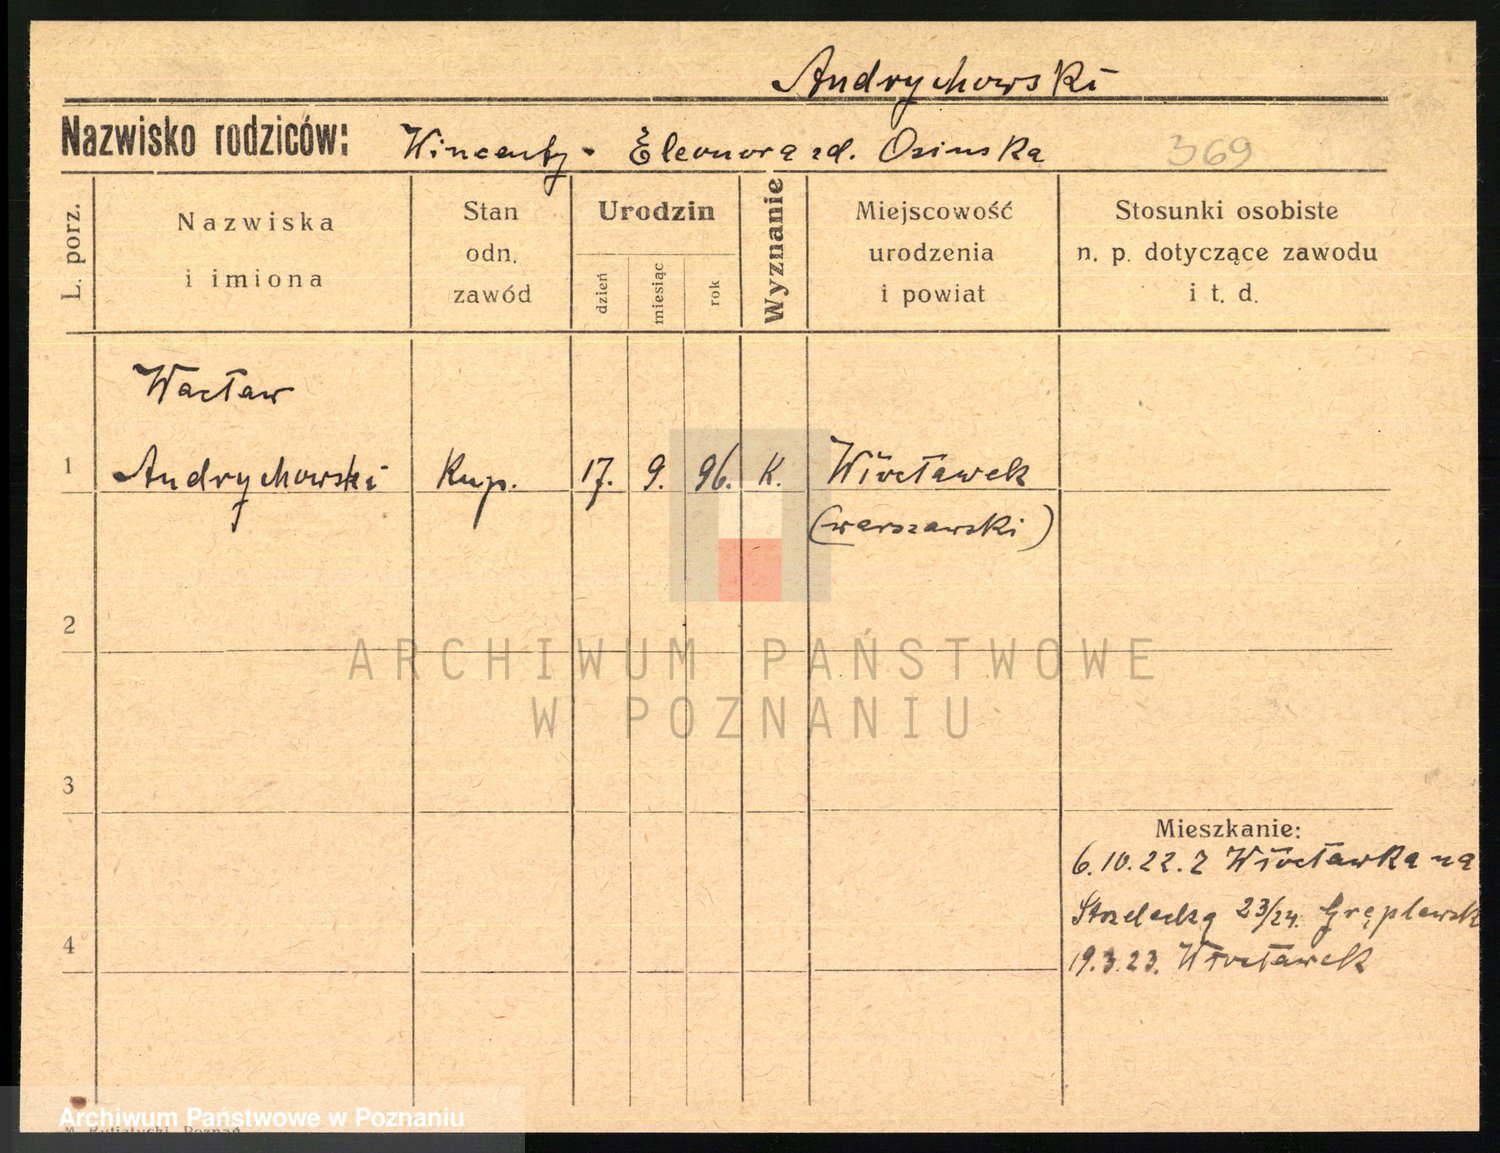 Andrychowski
Nazwisko rodziców: Wincenty - Eleonora zd. Osinska 369
L. porz.
Nazwiska
i imiona
Stan
odn.
zawód
Urodzin
dzień
miesiąc
rok
Wyznanie
Miejscowość
urodzenia
i powiat
Stosunki osobiste
n. p. dotyczące zawodu
i t. d.
Wacław
1 Andrychowski Kup. 17. 9. 96. K. Włocławek
(warszawski)
2
ARCHIWUM PAŃSTWOWE
W POZNANIU
3
Mieszkanie:
6.10.22. Z Włocławka na
Strzelecką 23/24. Gręplewsk
4
19.3.23. Włocławek
Archiwum Państwowe w Poznaniu
Poznań